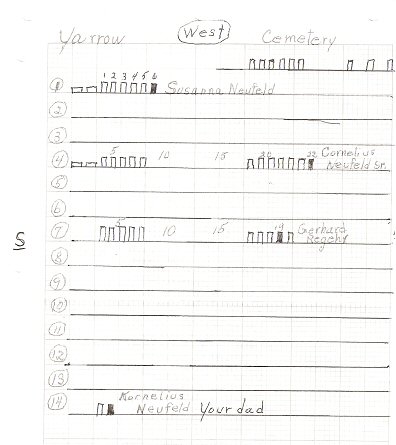 Yarrow West Cemetery
1 1 2 3 4 5 6 Susanna Neufeld
2
3
4 5 10 15 20 22 Cornelius
Neufeld Sr.
5
6
S
7 5 10 15 19 Gerhard
Regehr
8
9
10
11
12
13
14 Kornelius
Neufeld Your dad